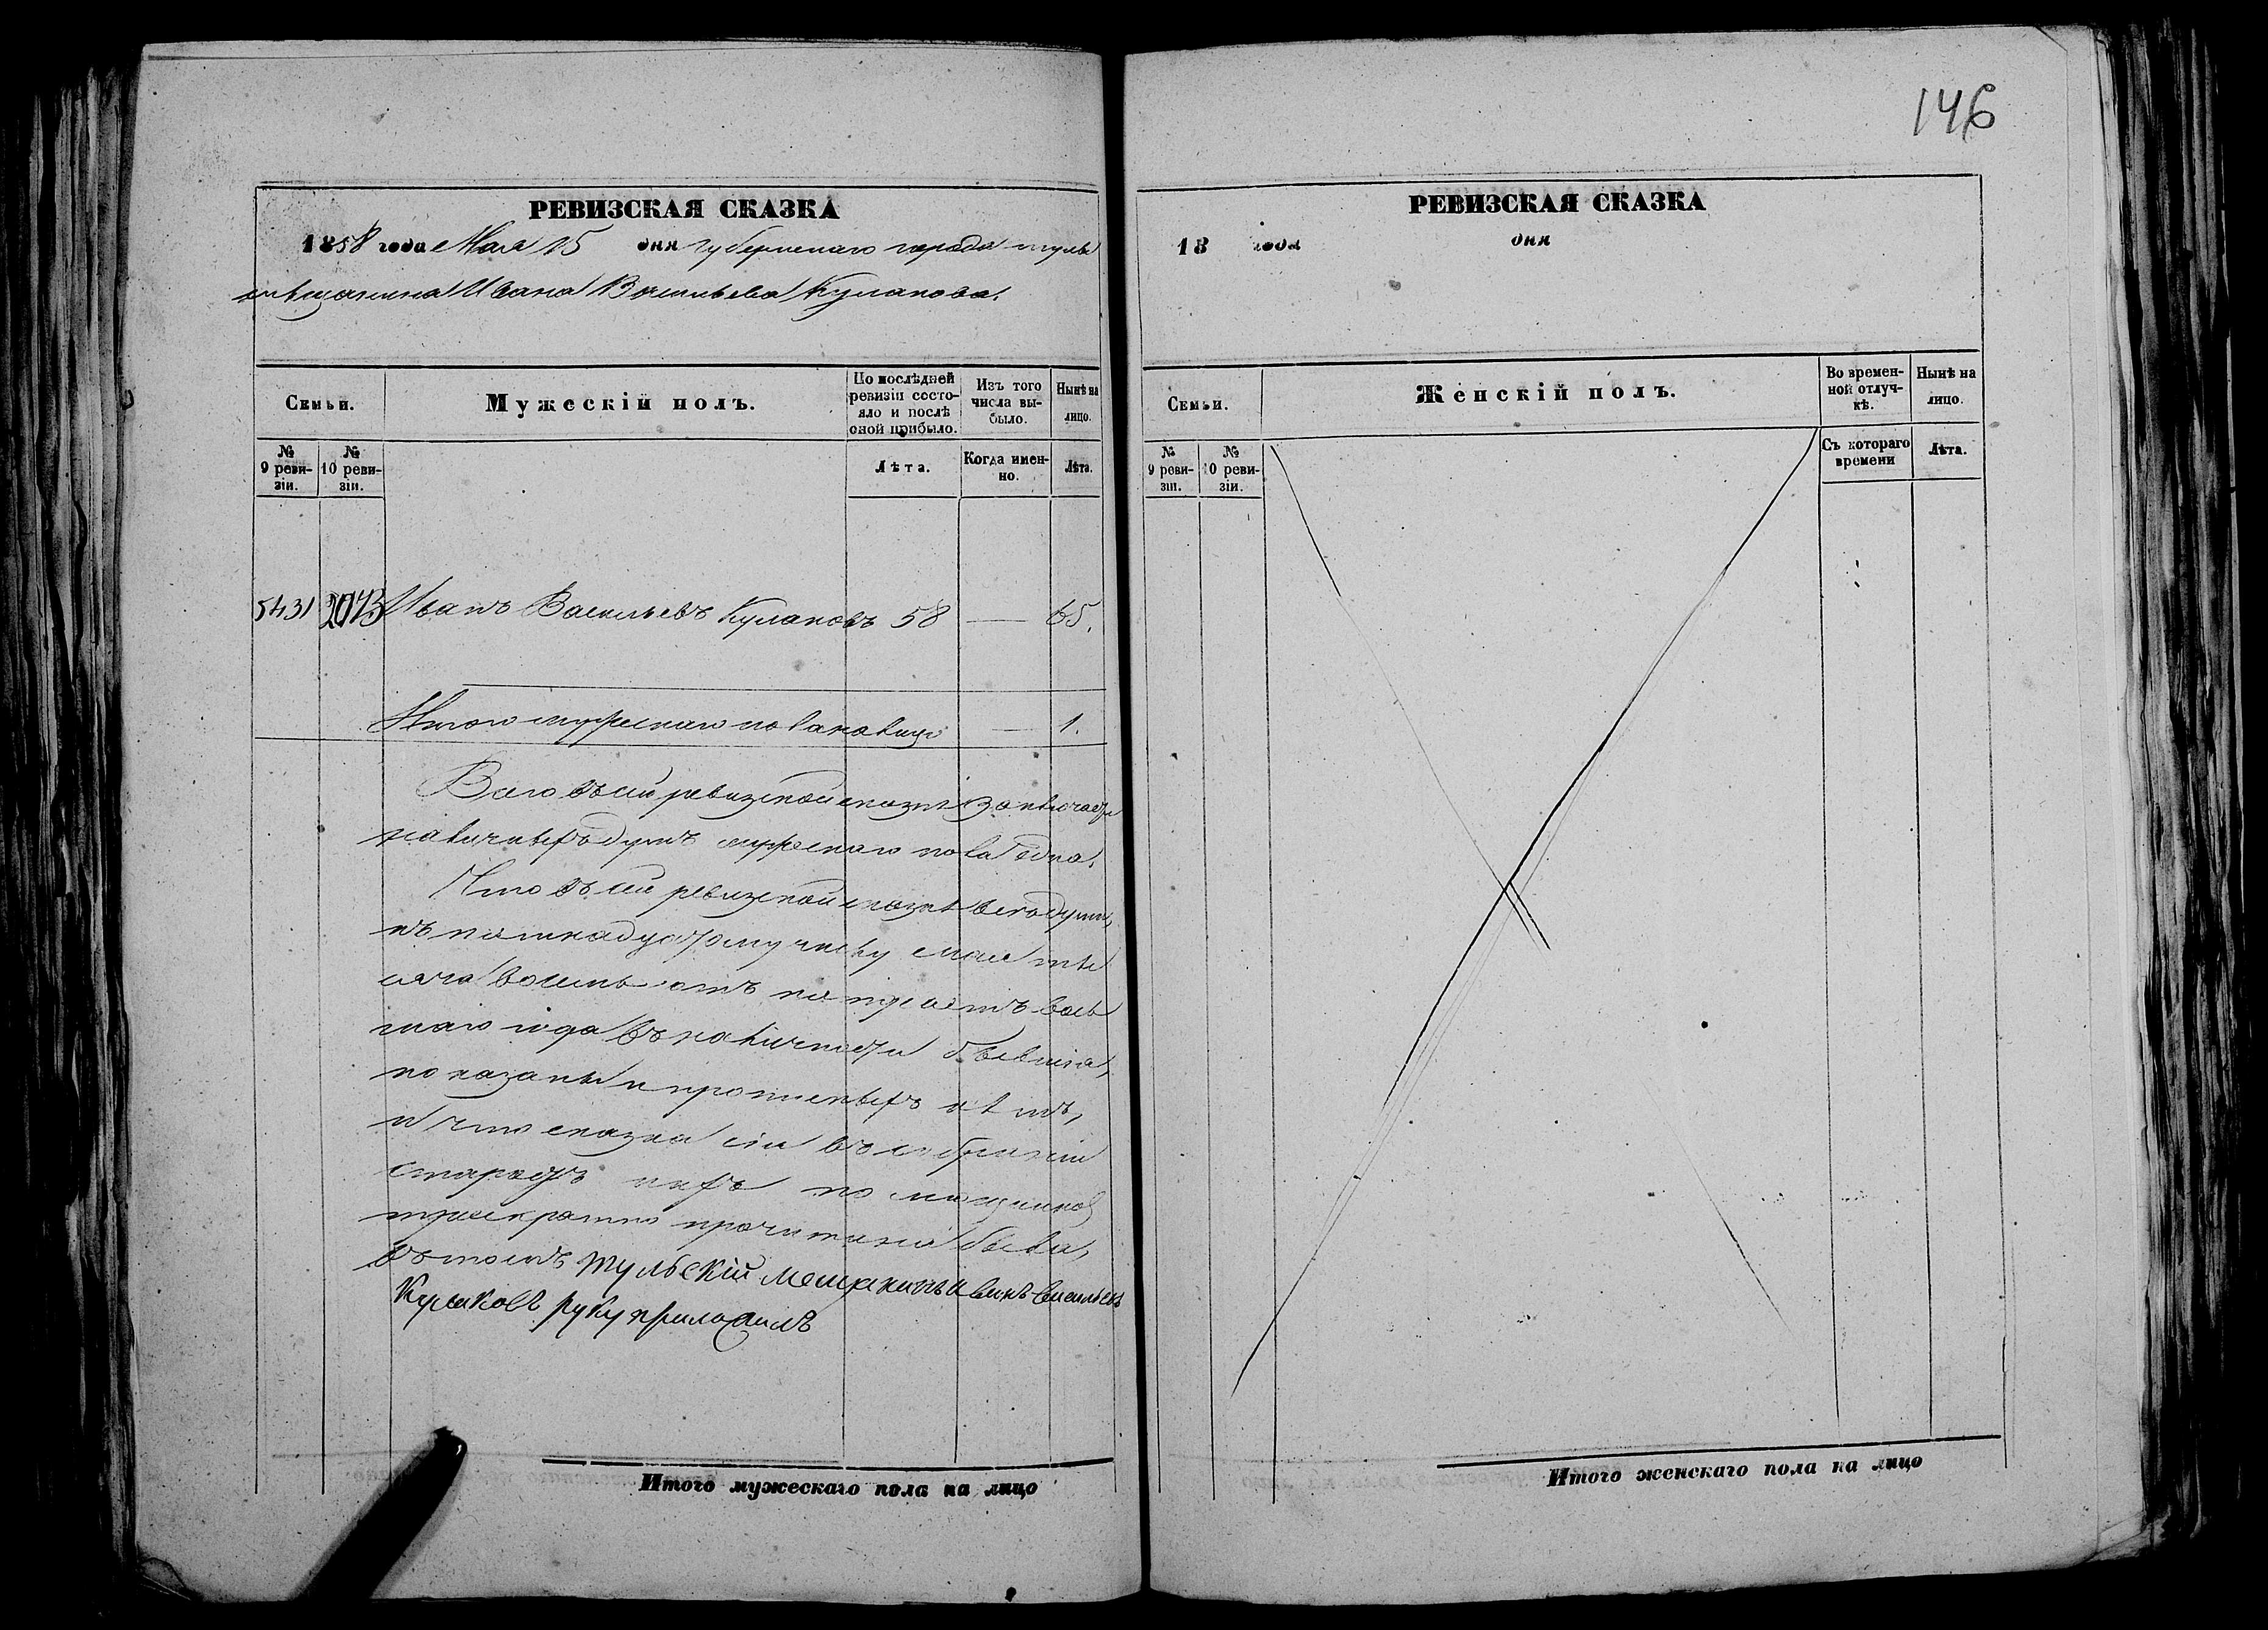 146
РЕВИЗСКАЯ СКАЗКА
1858 года Мая 15 дня губернскаго города тулы
мѣщанина Ивана Васильева Кулакова.
Семьи.
Мужескій полъ.
По послѣдней ревизіи состояло и послѣ оной прибыло.
Изъ того числа выбыло.
Нынѣ на лицо.
№ 9 ревизіи.
№ 10 ревизіи.
Лѣта.
Когда именно.
Лѣта.
5431 2073 Иванъ Васильевъ Кулаковъ 58 — 65.
Итого мужескаго пола налицо — 1.
Всего въ сей ревизской сказкѣ заключается
наличныхъ душъ мужескаго пола одна.
Что въ сей ревизской сказкѣ все души,
къ пятнадцатому числу мая ты
сяча восемь сотъ пятьдесятъ вось
маго года въ наличности бывшія,
показаны и прописныхъ нѣтъ,
и что сказка сія въ собраніи
старостъ ихъ помощников
троекратно прочитана была,
въ томъ тульскій мещанинъ иванъ васильевъ
Кулаковъ руку приложилъ
Итого мужескаго пола на лицо
РЕВИЗСКАЯ СКАЗКА
18 года дня
Семьи.
Женскій полъ.
Во временной отлучкѣ.
Нынѣ на лицо.
№ 9 ревизіи.
№ 10 ревизіи.
Съ котораго времени
Лѣта.
Итого женскаго пола на лицо